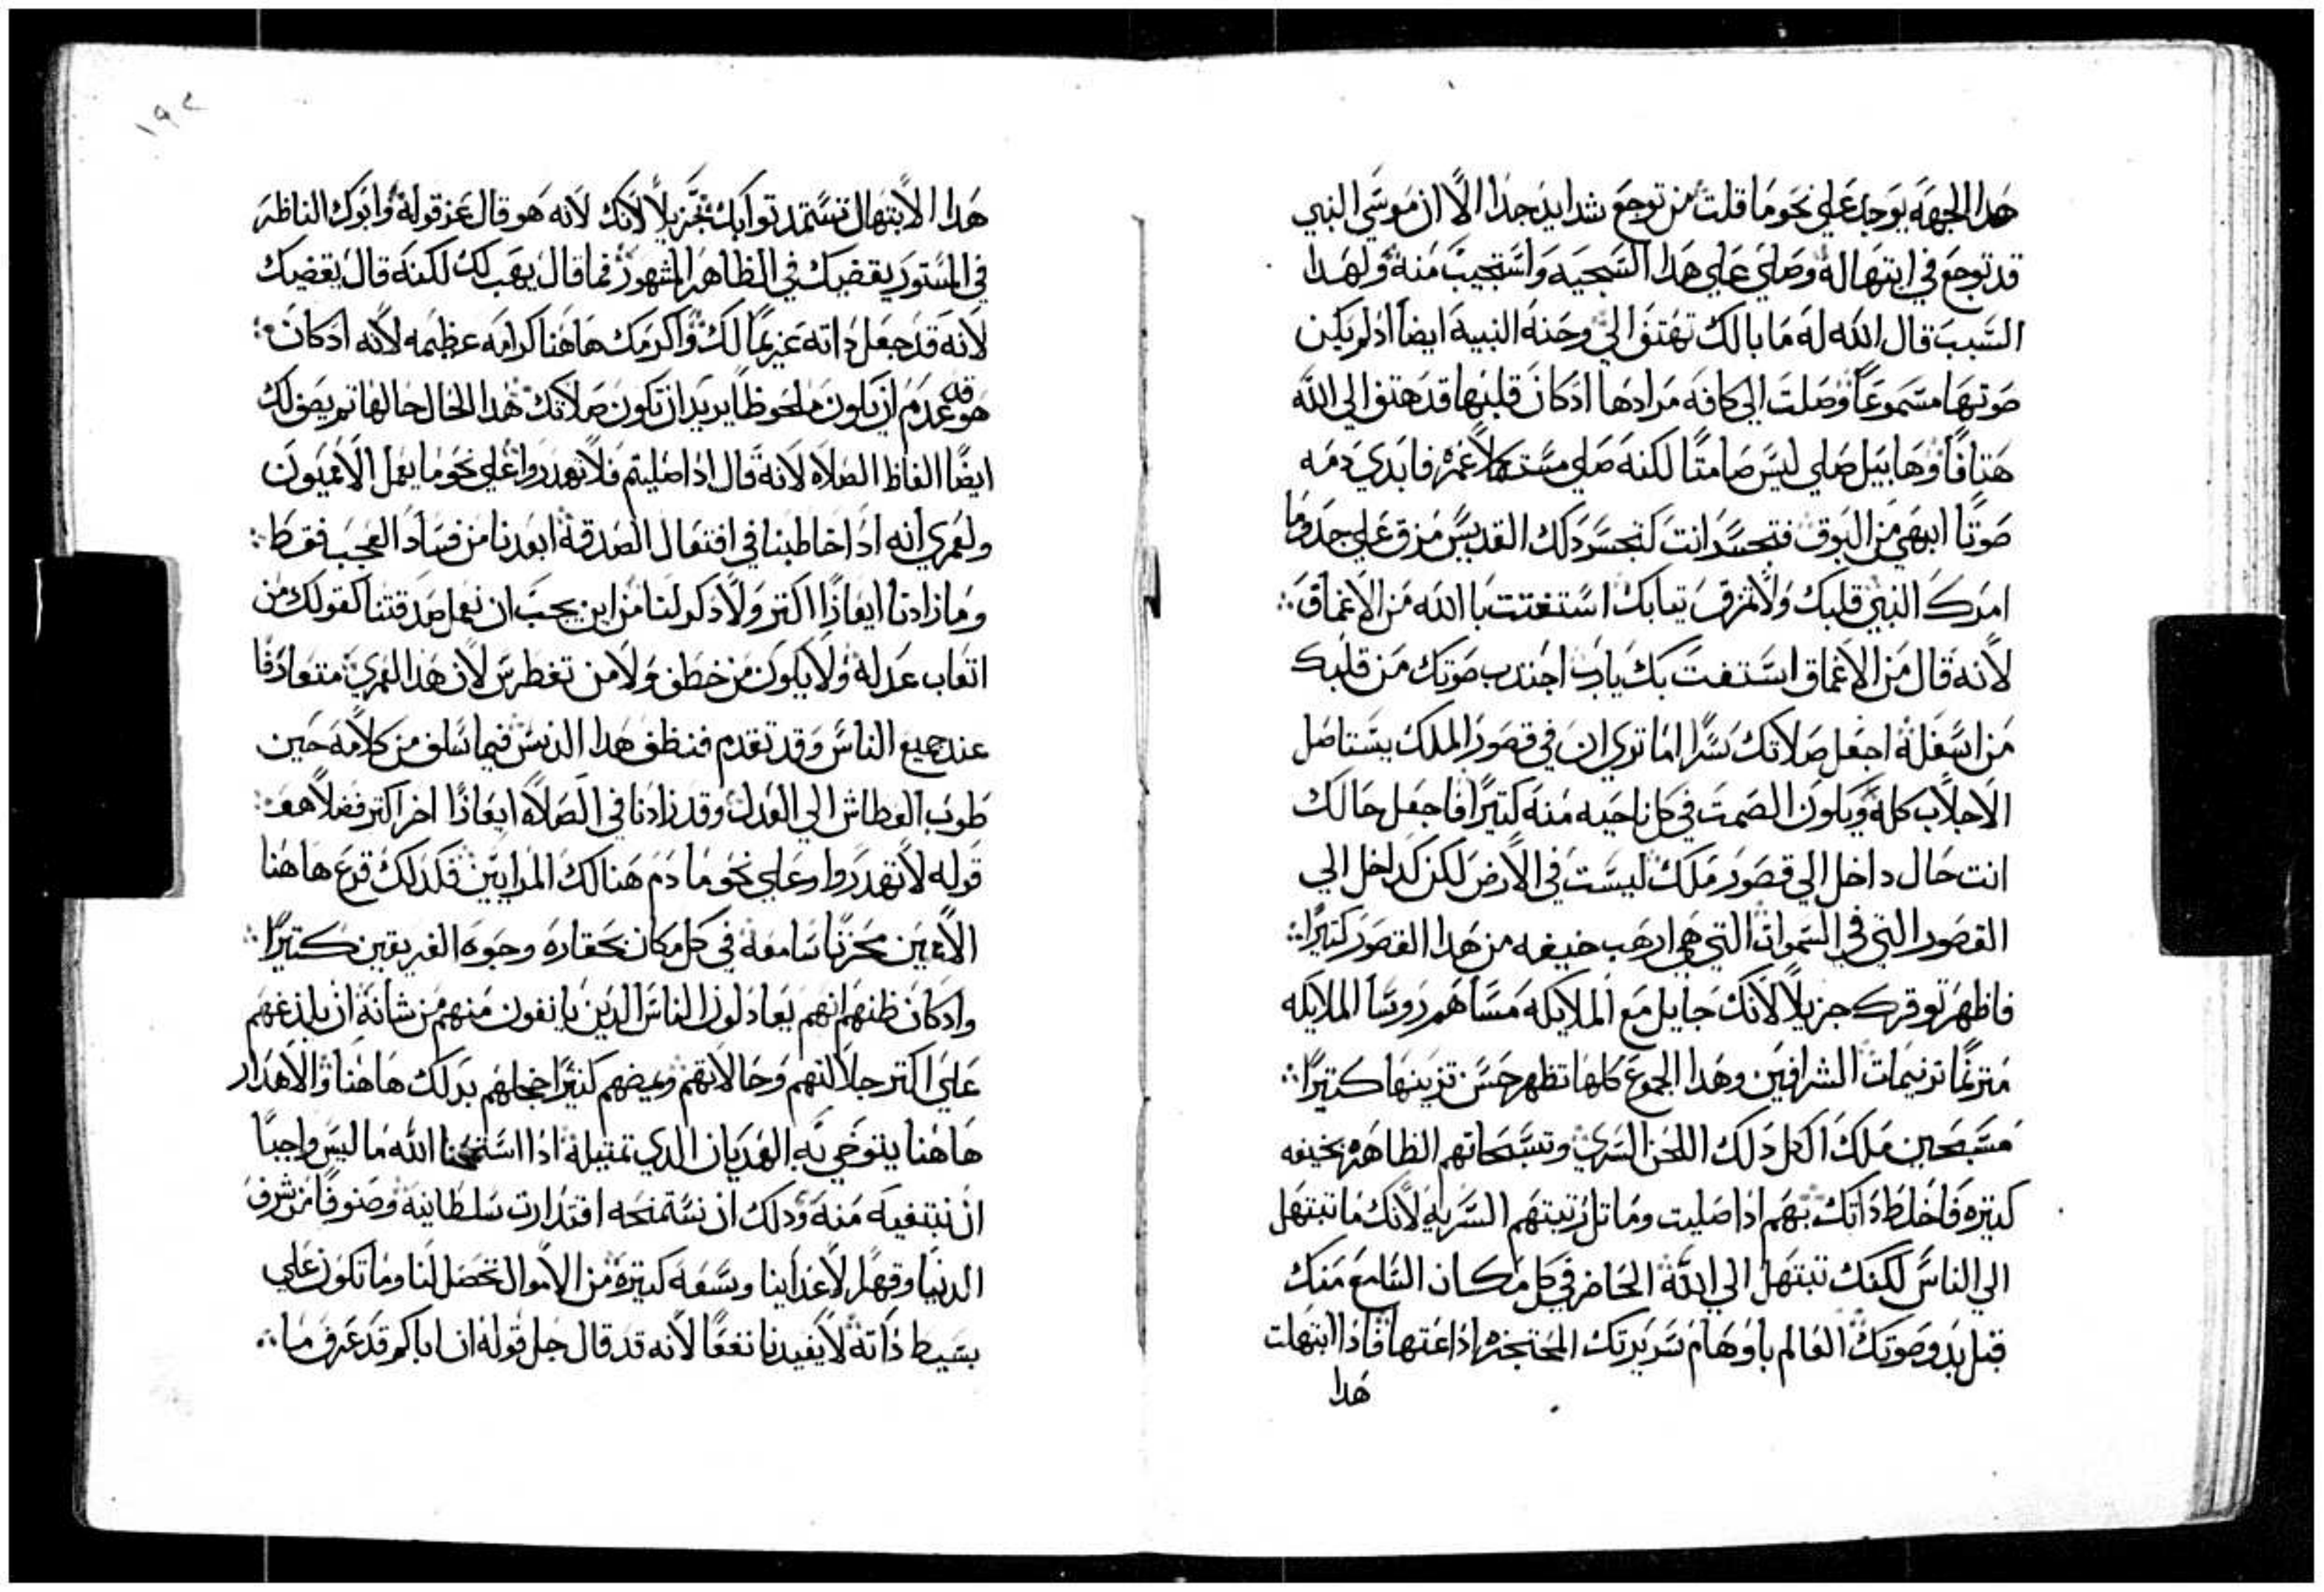 هدا الجهه يوجد علي نحو ما قلت من توجع شدايد جدا الا ان موسي النبي
قد توجع في ابتهاله وصلي علي هدا السجيه واستجيب منه ولهدا
السبب قال الله له ما بالك تهتف الي وحنه النبيه ايضا اد لم يكن
صوتها مسموعا وصلت الي كافه مرادها ادكان قلبها قد هتف الي الله
هتافا وهابيل صلي ليس صامتا لكنه صلي مستكملا عمره فابدي دمه
صوتا ابهي من البوق فتحسر انت كتحسر دلك القديس مزق علي حد وما
امرك النبي قلبك ولا تمزق تيابك استغتت با الله من الاعماق
لانه قال من الاعماق استغت بك يارب اجتدب صوتك من قلبك
من اسفله اجعل صلاتك سرا اما تري ان في قصور الملك يستاصل
الاجلاب كله ويكون الصمت في كل ناحيه منه كتيرا فاجعل حالك
انت حال داخل الي قصور ملك ليست في الارض لكن كداخل الي
القصور التي في السموات التي هي ارهب خيفه من هدا القصور كتيرا
فاظهر توقرك جزيلا لانك جايل مع الملايكه مساهم روسا الملايكه
مترنما ترنيمات الشرافين وهدا الجموع كلها تظهر حسن تزينها كتيرا
مسبحين ملك الكل دلك اللحن السري وتسبحاتهم الظاهره بخيفه
كتيره فاخلط داتك بهم ادا صليت وماتل رتبتهم السريه لانك ما تبتهل
الي الناس لكنك تبتهل الي الله الحاضر في كل مكان السامع منك
قبل بدو صوتك العالم باوهام سريرتك المحتجزه اداعتها فادا ابتهلت
هدا
١٩٢
هدا الابتهال تستمد توابك جزيلا لانك لانه هو قال عز قوله وابوك الناظر
في المستور يقضيك في الظاهر المشهور فما قال يهب لك لكنه قال يقضيك
لانه قد جعل داته غريما لك واكرمك هاهنا كرامه عظيمه لانه ادكان
هو قد عدم ان يكون ملحوظا يريد ان تكون صلاتك هدا الحال حالها تم يصف لك
ايضا الفاظ الصلاه لانه قال ادا صليتم فلا تهدروا علي نحو ما يعمل الامميون
ولعمري انه ادا خاطبنا في افتعال الصدقه ابعدنا من فساد العجب فقط
وما زادنا ايعازا اكتر ولا دكر لنا من اين يجب ان نعمل صدقتنا كقولك من
اتعاب عدله ولا يكون من خطف ولا من تغطرس لان هدا العمري متعادفا
عند جميع الناس وقد تقدم فنظف هدا الدنس فيما سلف من كلامه حين
طوب العطاش الي العدل وقد زادنا في الصلاه ايعازا اخر اكتر فضلا هو
قوله لا تهدروا وعلي نحو ما دم هنالك المرايين فكدلك قرع هاهنا
الامميين محزنا سامعه في كل مكان بحقاره وجوه الفريقين كتيرا
وادكان ظنهم انهم يعادلون الناس الدين يانفون منهم من شانه ان يلدغهم
علي اكتر جلالتهم وحالاتهم ويمضهم كتيرا اخجلهم بدلك هاهنا والاهدار
هاهنا يتوخي به الهديان الدي تمتيله ادا استمنحنا الله ما ليس واجبا
ان نبتغيه منه ودلك ان نستمنحه اقتدارت سلطانيه وصنوفا من شرف
الدنيا وقهرا لاعداينا وسعه كتيره من الاموال تحصل لنا وما تكون علي
بسيط داته لا يفيدنا نفعا لانه قد قال جل قوله ان اباكم قد عرف ما